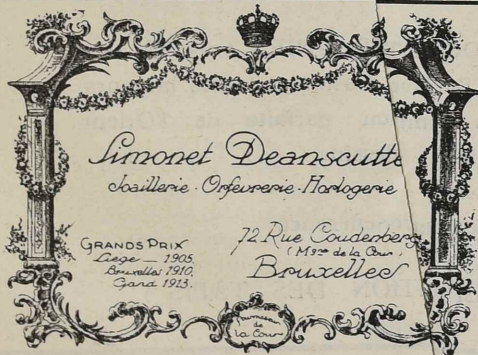 Simonet Deanscutte
Joaillerie - Orfevrerie - Horlogerie
GRANDS PRIX
Liege — 1905.
Bruxelles 1910.
Gand 1913.
72 Rue Coudenberg
(Mgne de la Cour)
Bruxelles
de
la Cour